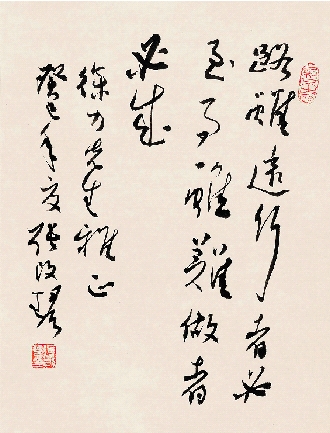 路雖遠行者必
至事雖難做者
必成
徐力先生雅正
癸巳年夏張改琴